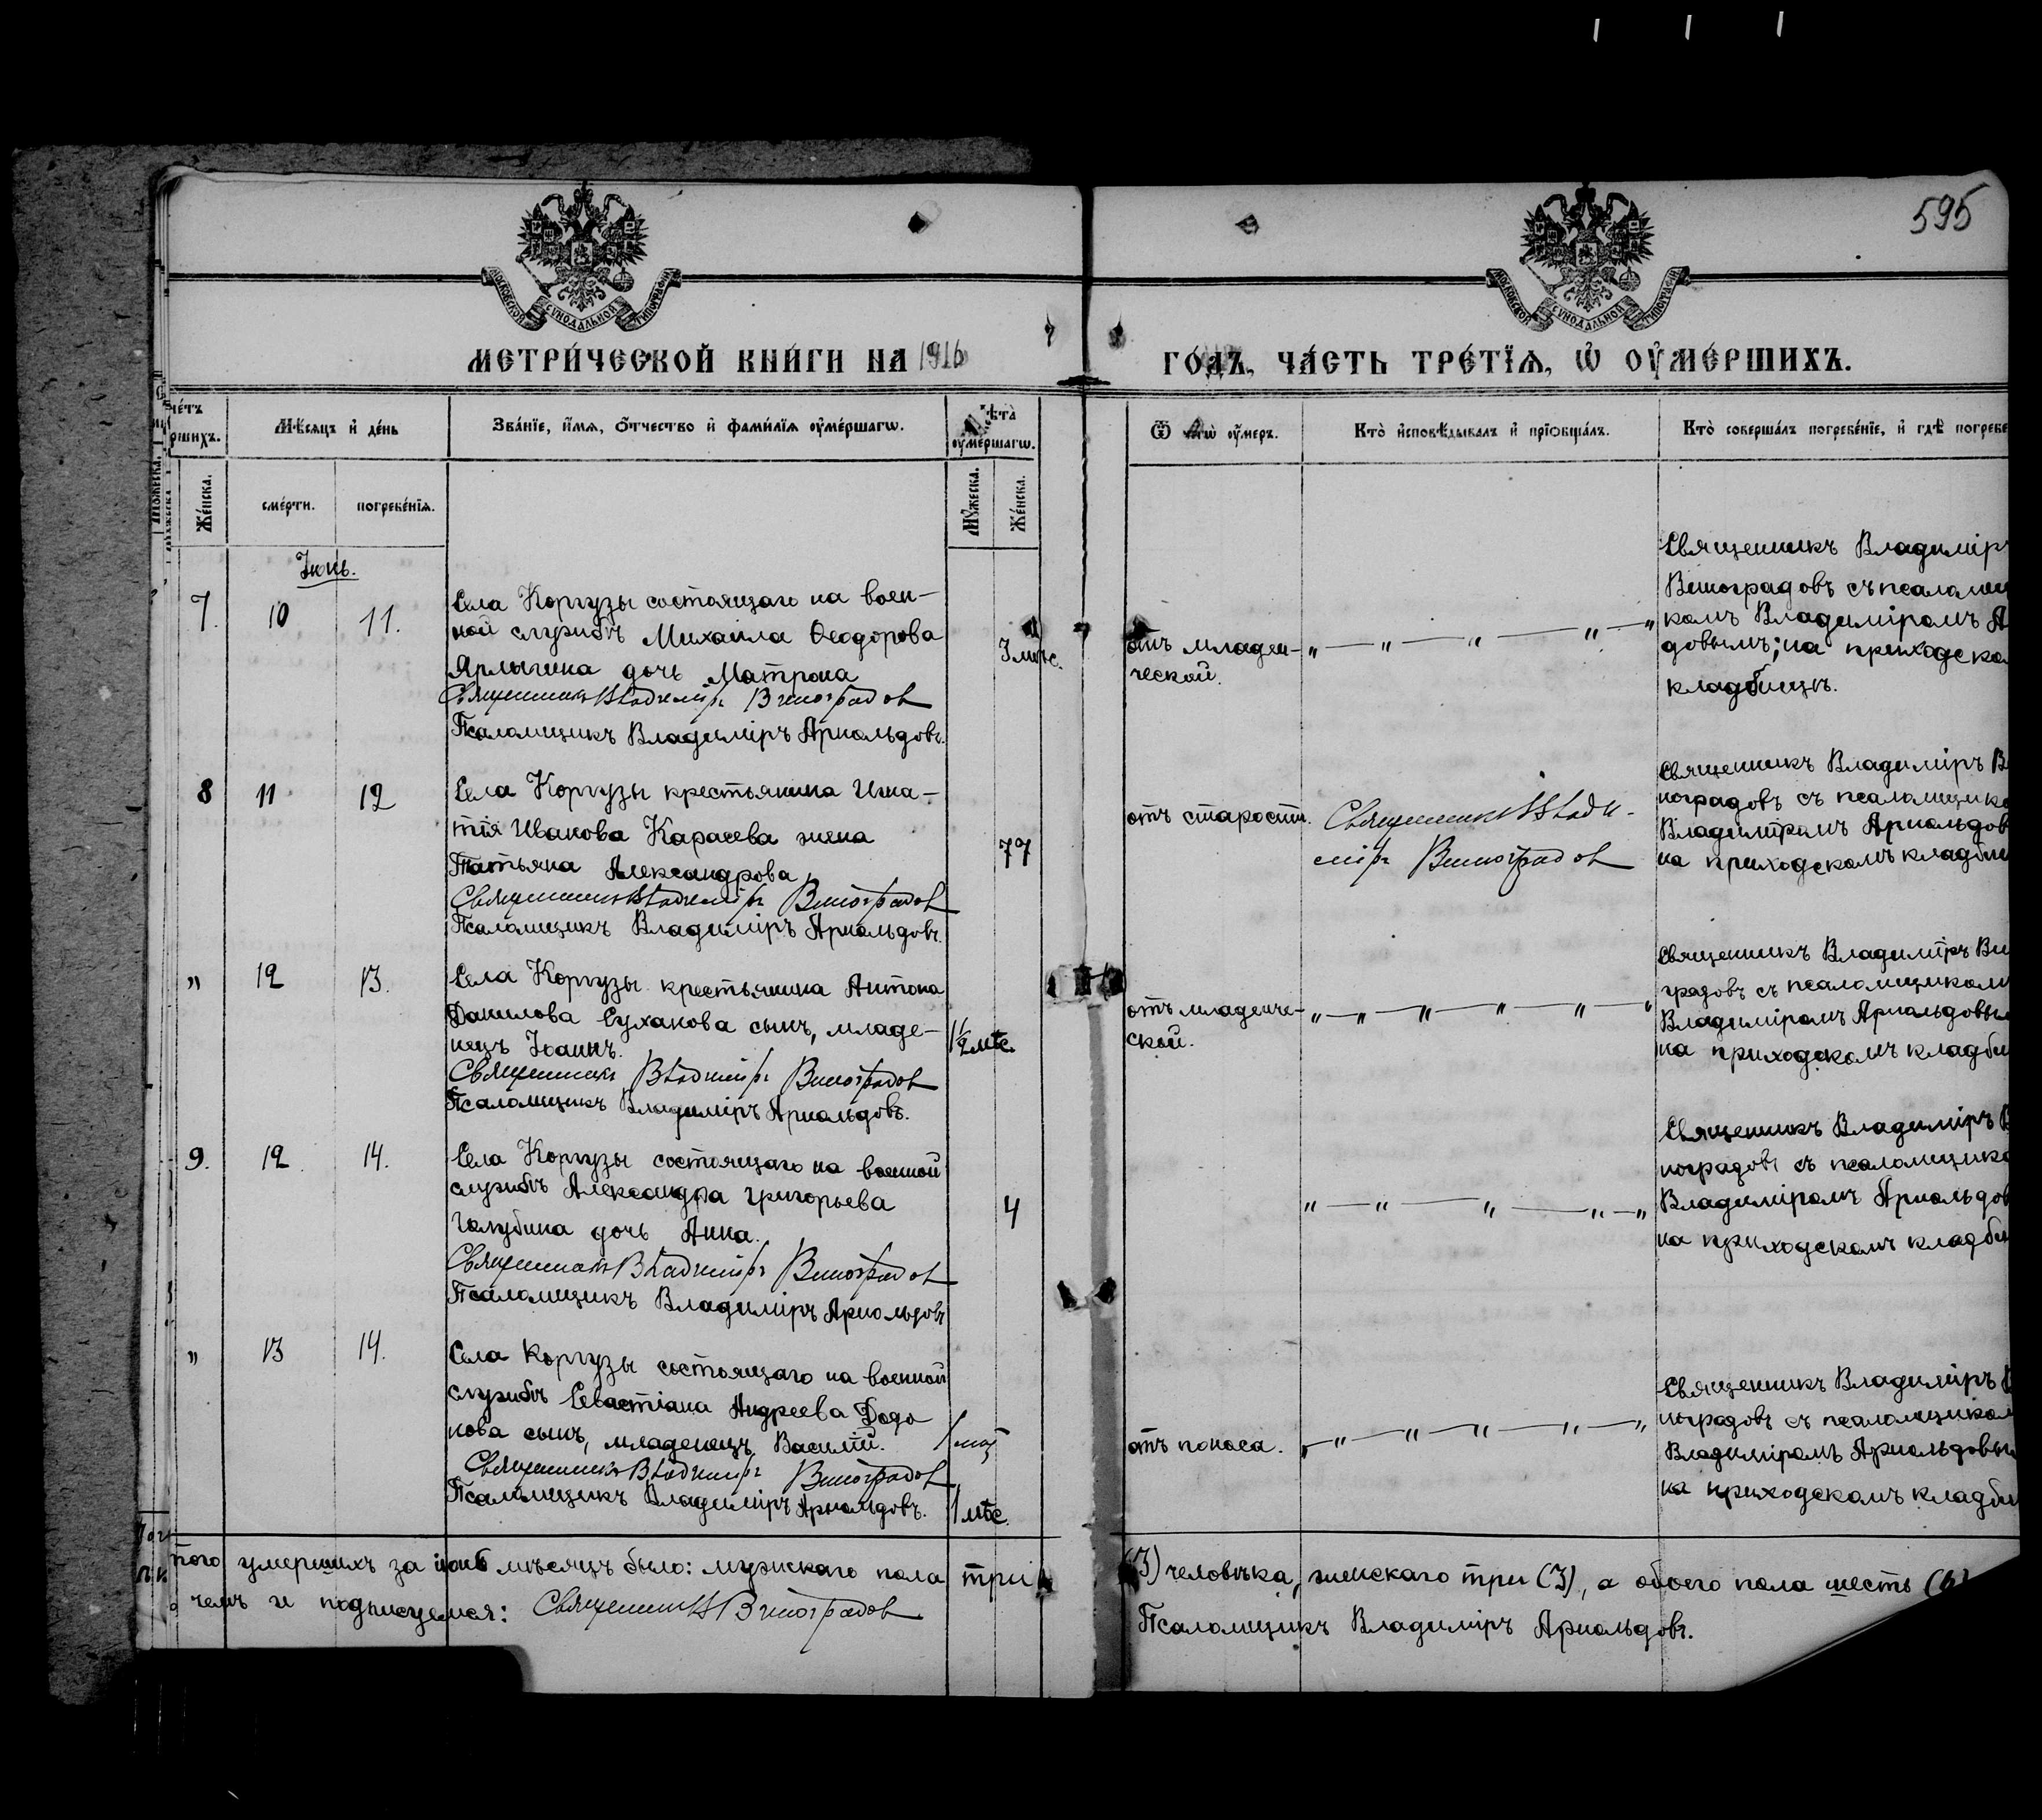 595
МОСКОВСКОЙ СѴНОДАЛЬНОЙ ТИПОГРАФІИ
МОСКОВСКОЙ СѴНОДАЛЬНОЙ ТИПОГРАФІИ
МЕТРИ́ЧЕСКОЙ КНИ́ГИ НА 1916
ГО́ДЪ, ЧА́СТЬ ТРЕ́ТЇѦ, Ѡ҆ ОУ҆МЕ́РШИХЪ.
Мѣ́сѧцъ и҆ де́нь
Зва́нїе, и҆́мѧ, ѻ҆́тчество и҆ фами́лїѧ оу҆ме́ршагѡ.
оу҆ме́ршагѡ.
оу҆́меръ.
Кто̀ и҆сповѣ́дывалъ и҆ прїѡбща́лъ.
Кто̀ соверша́лъ погребе́нїе, и҆ гдѣ̀ погребе
Же́нска.
сме́рти.
погребе́нїѧ.
Мꙋ́жеска.
Же́нска.
Іюнь.
7. 10 11.
Села Коргузы состоящаго на воен-
ной службѣ Михаила Ѳеодорова
Ярлыгина дочь Матрона
Священникъ Владиміръ Виноградовъ
Псаломщикъ Владиміръ Арнольдовъ.
3 мѣс.
отъ младен-
ческой.
Священникъ Владиміръ
Виноградовъ съ псаломщи
комъ Владиміромъ А
довымъ; на приходско
кладбищѣ.
8 11 12
Села Коргузы крестьянина Игна-
тія Иванова Карасева жена
Татьяна Александрова
Священникъ Владиміръ Виноградовъ
Псаломщикъ Владиміръ Арнольдовъ.
77
отъ старости.
Священникъ Влади-
міръ Виноградовъ
Священникъ Владиміръ Ви
ноградовъ съ псаломщико
Владиміромъ Арнольдов
на приходскомъ кладбищ
" 12 13.
Села Коргузы крестьянина Антона
Данилова Суханова сынъ, младе-
нецъ Іоаннъ.
Священникъ Владиміръ Виноградовъ
Псаломщикъ Владиміръ Арнольдовъ.
1½ мѣс.
отъ младенче-
ской.
Священникъ Владиміръ Ви
градовъ съ псаломщикомъ
Владиміромъ Арнольдовым
на приходскомъ кладби
9. 12. 14.
Села Коргузы состоящаго на военной
службѣ Александра Григорьева
Голубина дочь Анна.
Священникъ Владиміръ Виноградовъ
Псаломщикъ Владиміръ Арнольдовъ
4
Священникъ Владиміръ В
ноградовъ съ псаломщико
Владиміромъ Арнольдов
на приходскомъ кладби
" 13 14.
Села Коргузы состоящаго на военной
службѣ Севастіана Андреева Додо
нова сынъ, младенецъ Василій.
Священникъ Владиміръ Виноградовъ
Псаломщикъ Владиміръ Арнольдовъ.
1 мѣс.
отъ поноса.
Священникъ Владиміръ В
ноградовъ съ псаломщиком
Владиміромъ Арнольдовы
на приходскомъ кладби
того умершихъ за іюнь мѣсяцъ было: мужскаго пола три
(3) человѣка, женскаго три (3), а обоего пола шесть (6)
чемъ и подписуемся: Священникъ В Виноградовъ
Псаломщикъ Владиміръ Арнольдовъ.